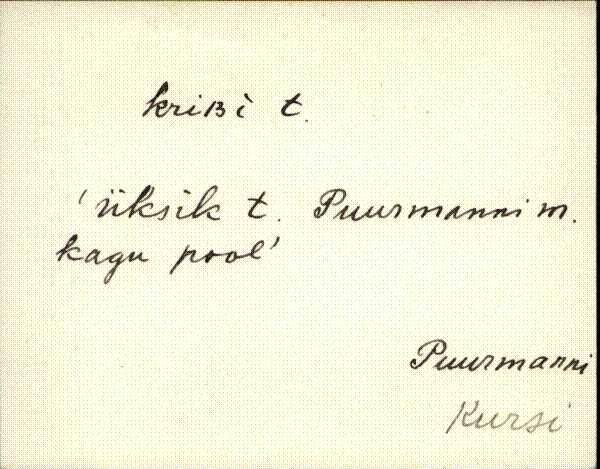 kriʙì t.
'üksik t. Puurmanni m.
kagu pool'
Puurmanni
Kursi